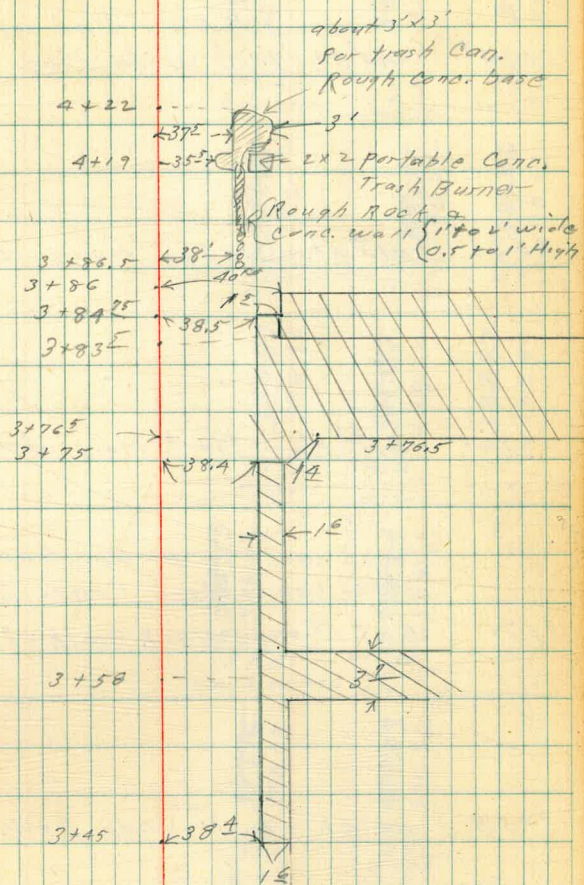 about 3' x 3'
for trash Can.
Rough Conc. base
4+22
37⁵
3'
4+19
35⁵
2x2 portable Conc.
Trash Burner
Rough Rock &
Conc. wall { 1' to 2' wide
0.5 to 1' High
3+86.5
38'
3+86
3+84⁷⁵
38.5
3+83⁵
3+76⁵
3+76.5
3+75
38.4
1⁴
1⁶
3+58
3⁷
3+45
38⁴
1⁶